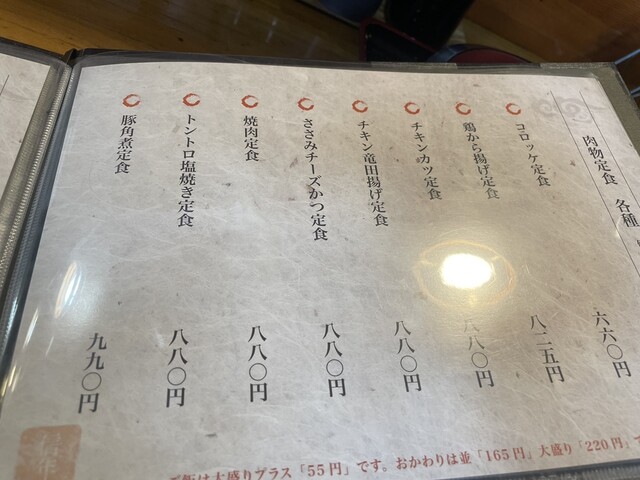 肉物定食 各種
コロッケ定食 六六〇円
鶏から揚げ定食 八二五円
チキンカツ定食 八八〇円
チキン竜田揚げ定食 八八〇円
ささみチーズかつ定食 八八〇円
焼肉定食 八八〇円
トントロ塩焼き定食 八八〇円
豚角煮定食 九九〇円
ご飯は大盛りプラス「55円」です。おかわりは並「165円」大盛り「220円」で